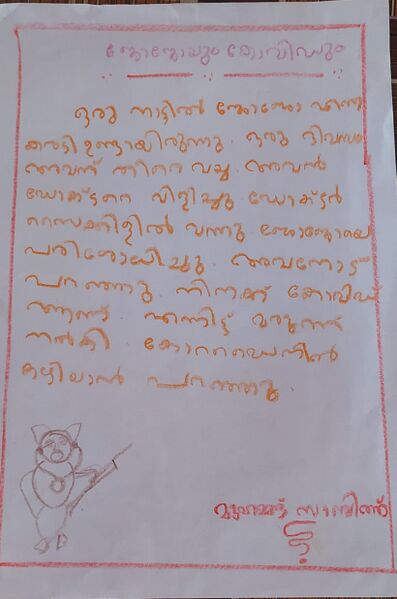 ജോജോയും കോവിഡും
ഒരു നാട്ടിൽ ജോജോ എന്ന
കരടി ഉണ്ടായിരുന്നു. ഒരു ദിവസം
അവന് തീരെ വയ്യ. അവൻ
ഡോക്ടറെ വിളിച്ചു. ഡോക്ടർ
സൈക്കിളിൽ വന്നു. ജോജോയെ
പരിശോധിച്ചു. അവനോട്
പറഞ്ഞു. നിനക്ക് കോവിഡ്
ആണ്. എന്നിട്ട് മരുന്ന്
നൽകി
കഴിയാൻ പറഞ്ഞു.
മുഹമ്മദ്